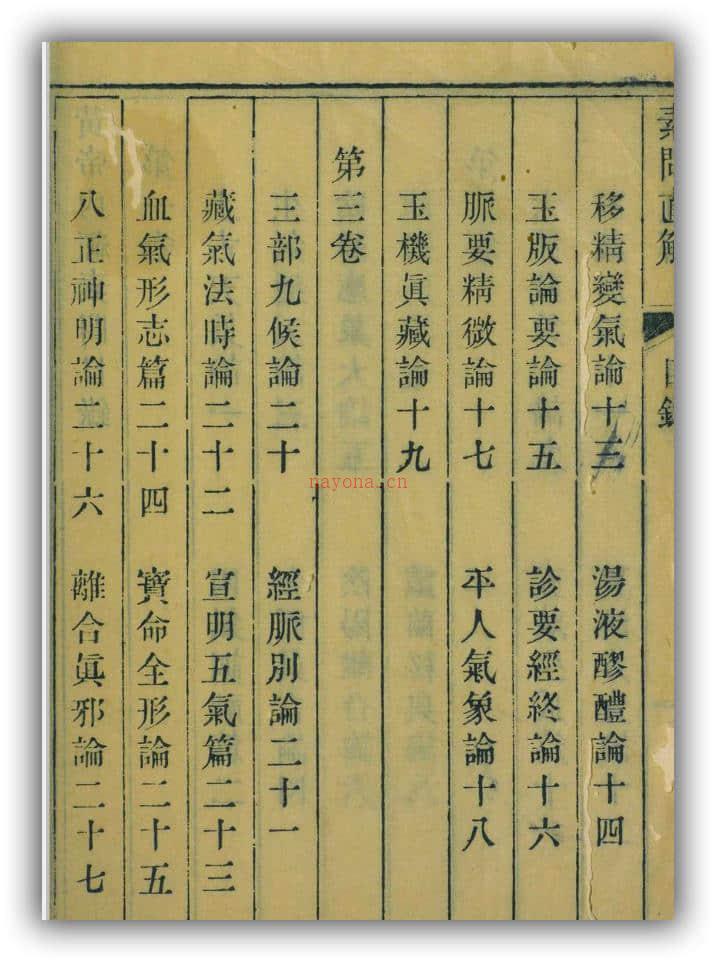 素問直解
目錄
移精變氣論十三　湯液醪醴論十四
玉版論要論十五　診要經終論十六
脈要精微論十七　平人氣象論十八
玉機眞藏論十九
第三卷
三部九候論二十　經脈別論二十一
藏氣法時論二十二　宣明五氣篇二十三
血氣形志篇二十四　寶命全形論二十五
八正神明論二十六　離合眞邪論二十七
nayona.cn